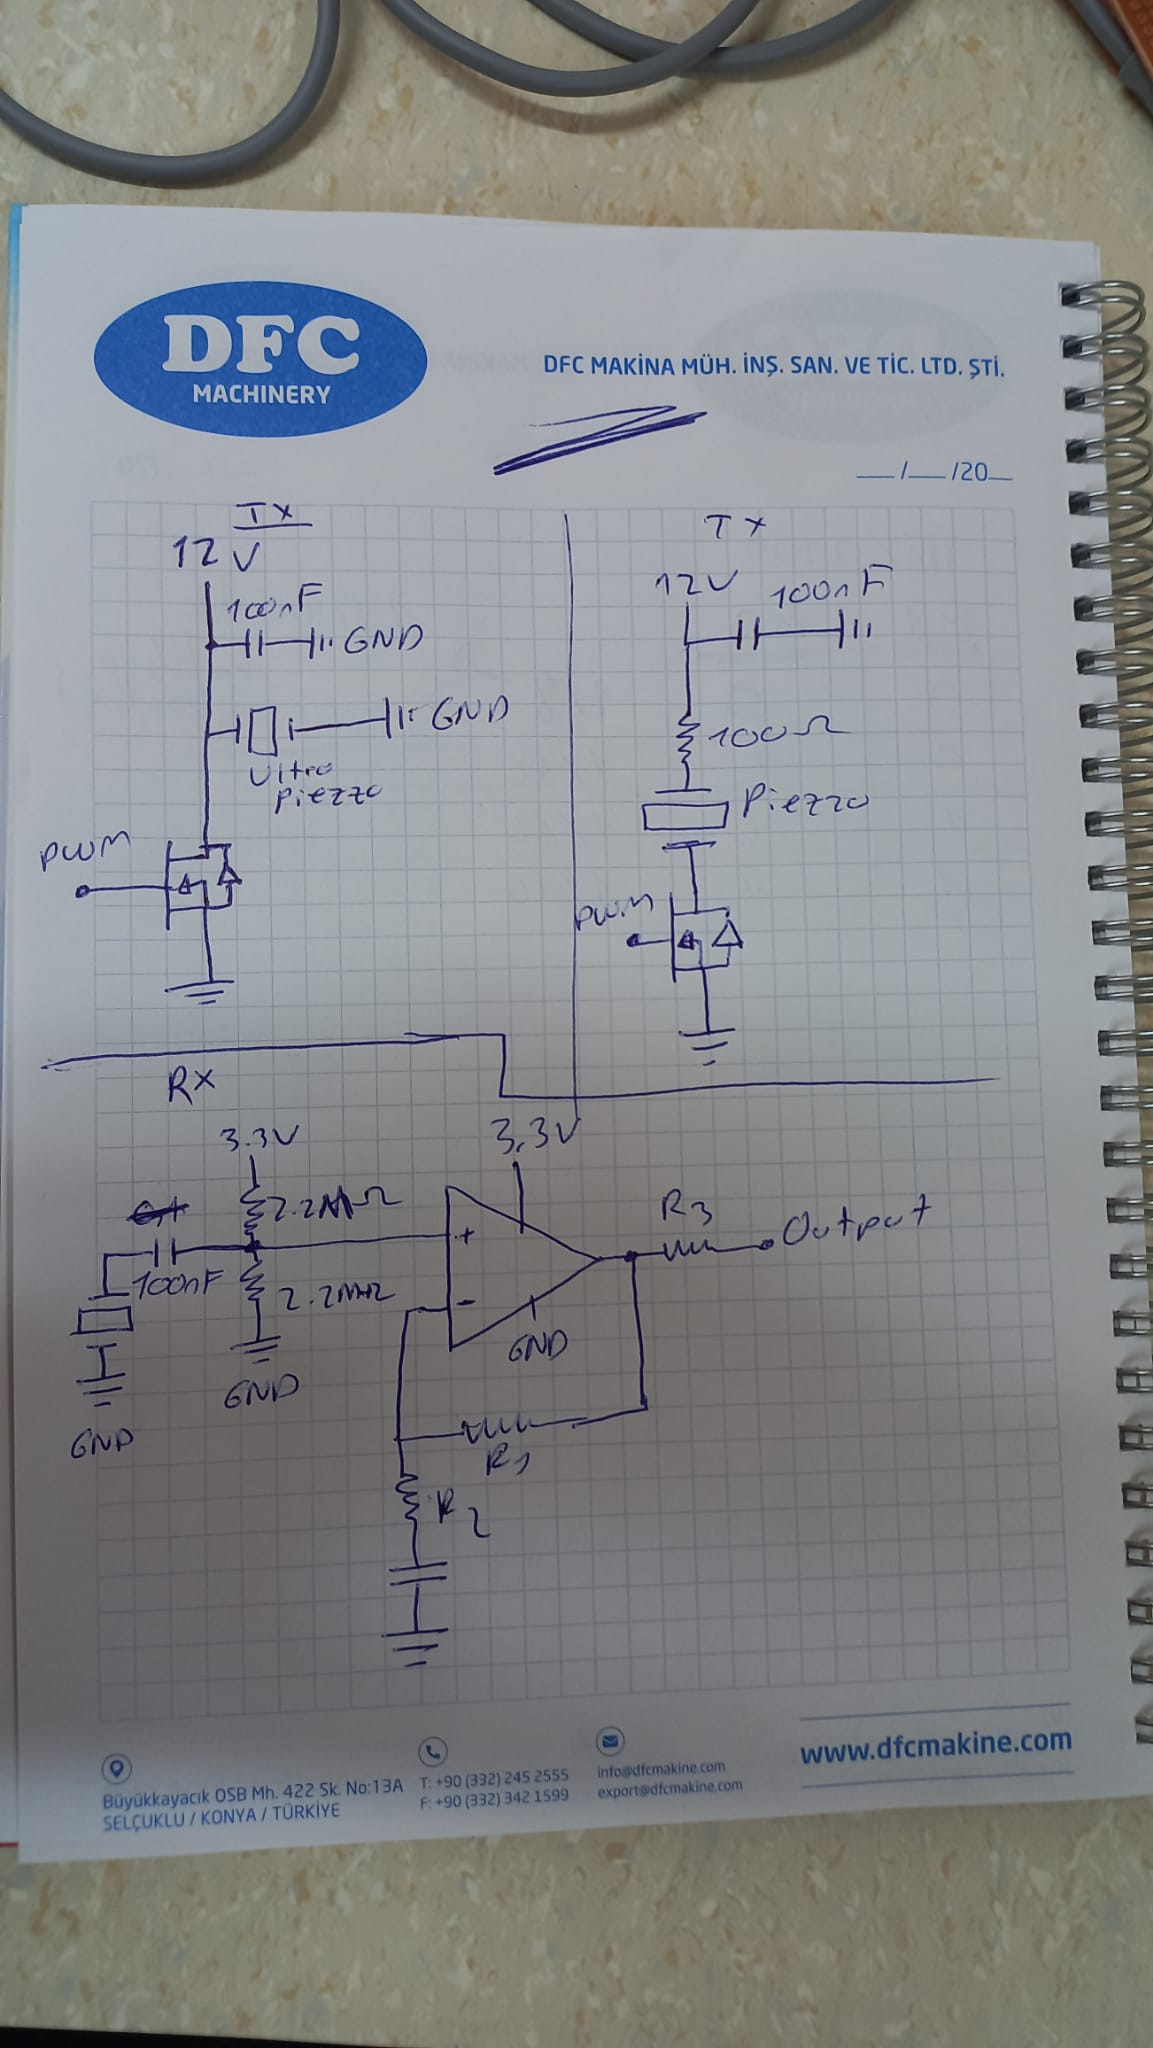 DFC
MACHINERY
DFC MAKİNA MÜH. İNŞ. SAN. VE TİC. LTD. ŞTİ.
__/__/20__
Tx
12V
100nF
GND
GND
Ultra
Piezzo
PWM
Tx
12V
100nF
100Ω
Piezzo
PWM
RX
3.3V
2.2MΩ
100nF
2.2MΩ
GND
GND
3.3V
+
-
GND
R3
Output
R1
R2
Büyükkayacık OSB Mh. 422 Sk. No:13A
SELÇUKLU / KONYA / TÜRKİYE
T: +90 (332) 245 2555
F: +90 (332) 342 1599
info@dfcmakine.com
export@dfcmakine.com
www.dfcmakine.com